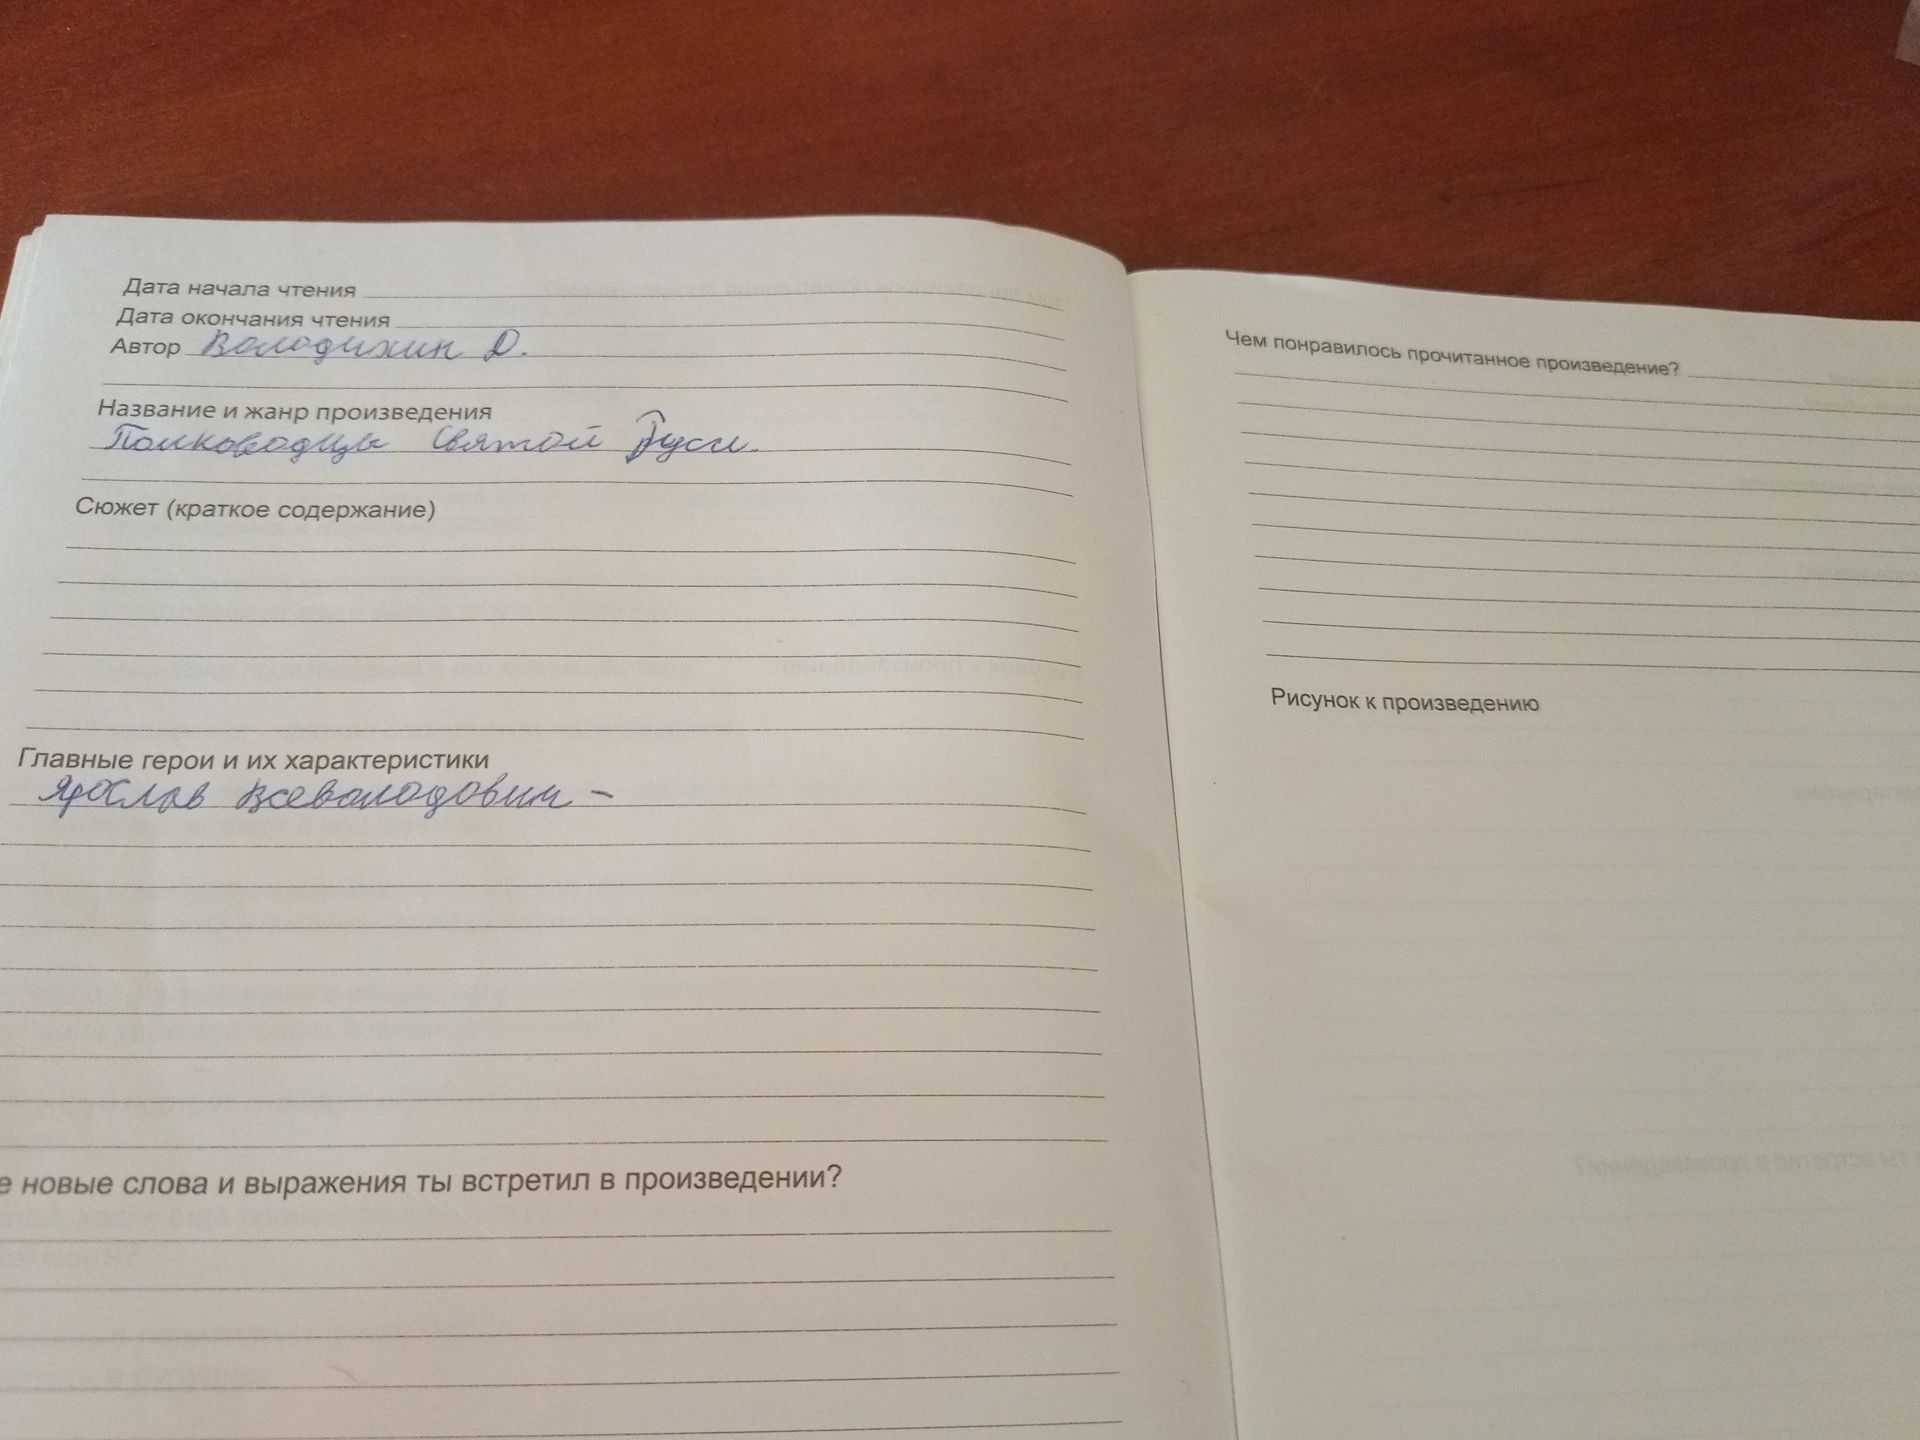 Дата начала чтения
Дата окончания чтения
Автор Володихин Д.
Название и жанр произведения
Полководцы Святой Руси.
Сюжет (краткое содержание)
Главные герои и их характеристики
Ярослав Всеволодович –
е новые слова и выражения ты встретил в произведении?
Чем понравилось прочитанное произведение?
Рисунок к произведению